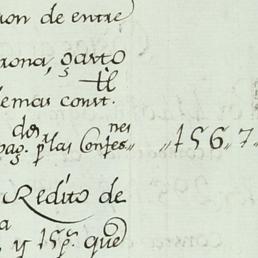 ion de entre
rona, gasto
til
demas convt.
der nes
pag. p las Confes" "156"7"
Redito de
a
y 15 p. que